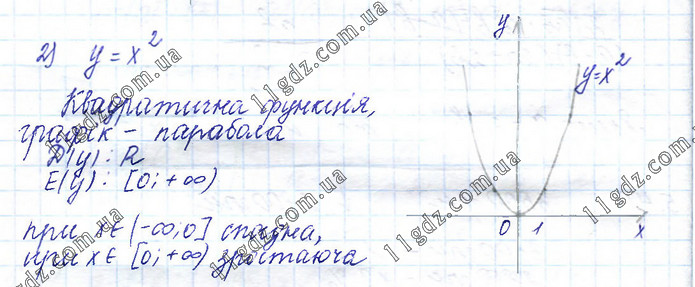 2) y = x²
Квадратична функція,
графік – парабола
D(y): R
E(y): [0; +∞)
при x ∈ (-∞; 0] спадна,
при x ∈ [0; +∞) зростаюча
y
y=x²
0 1 x
11gdz.com.ua
11gdz.com.ua
11gdz.com.ua
11gdz.com.ua
11gdz.com.ua
11gdz.com.ua
11gdz.com.ua